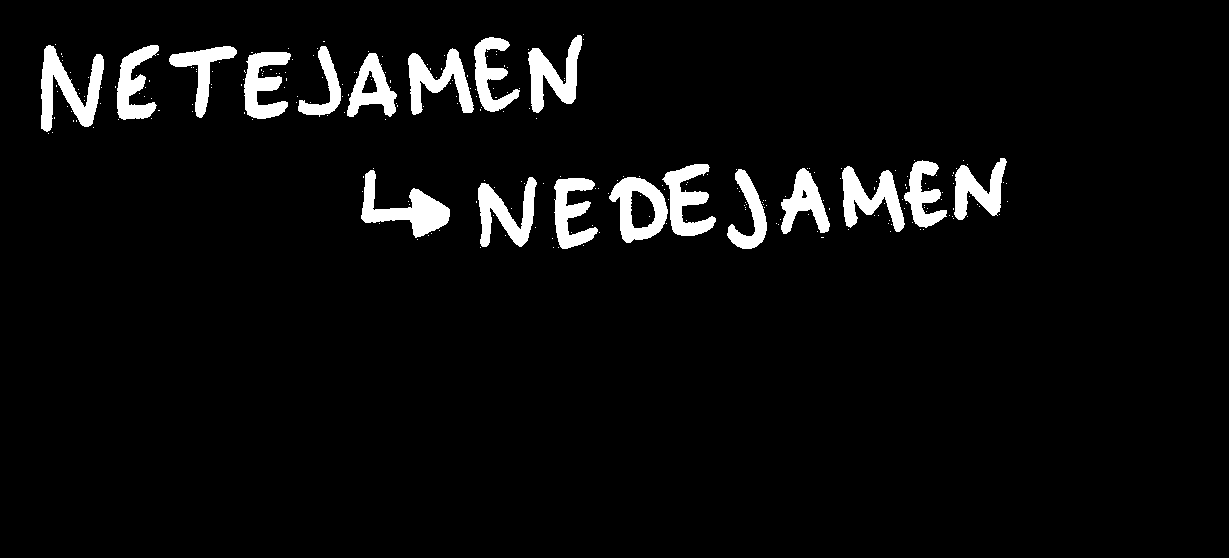 NETEJAMEN
↳ NEDEJAMEN